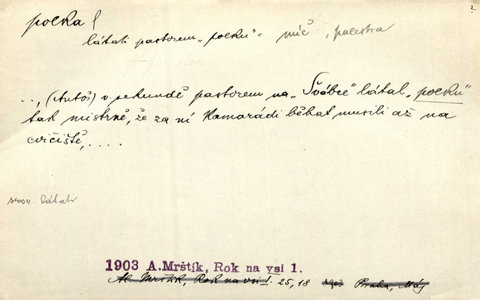 polka f
látati pastorem „polku“ míč, palestra
.., (Antoš) v sekundě pastorem na „Švábce“ látal „polku“
tak mistrně, že za ní kamarádi běhat musili až na
cvičiště, ....
srov. látati
1903 A.Mrštík, Rok na vsi 1.
Al. Mrštík, Rok na vsi I. 25, 18 1903 Praha, Máj